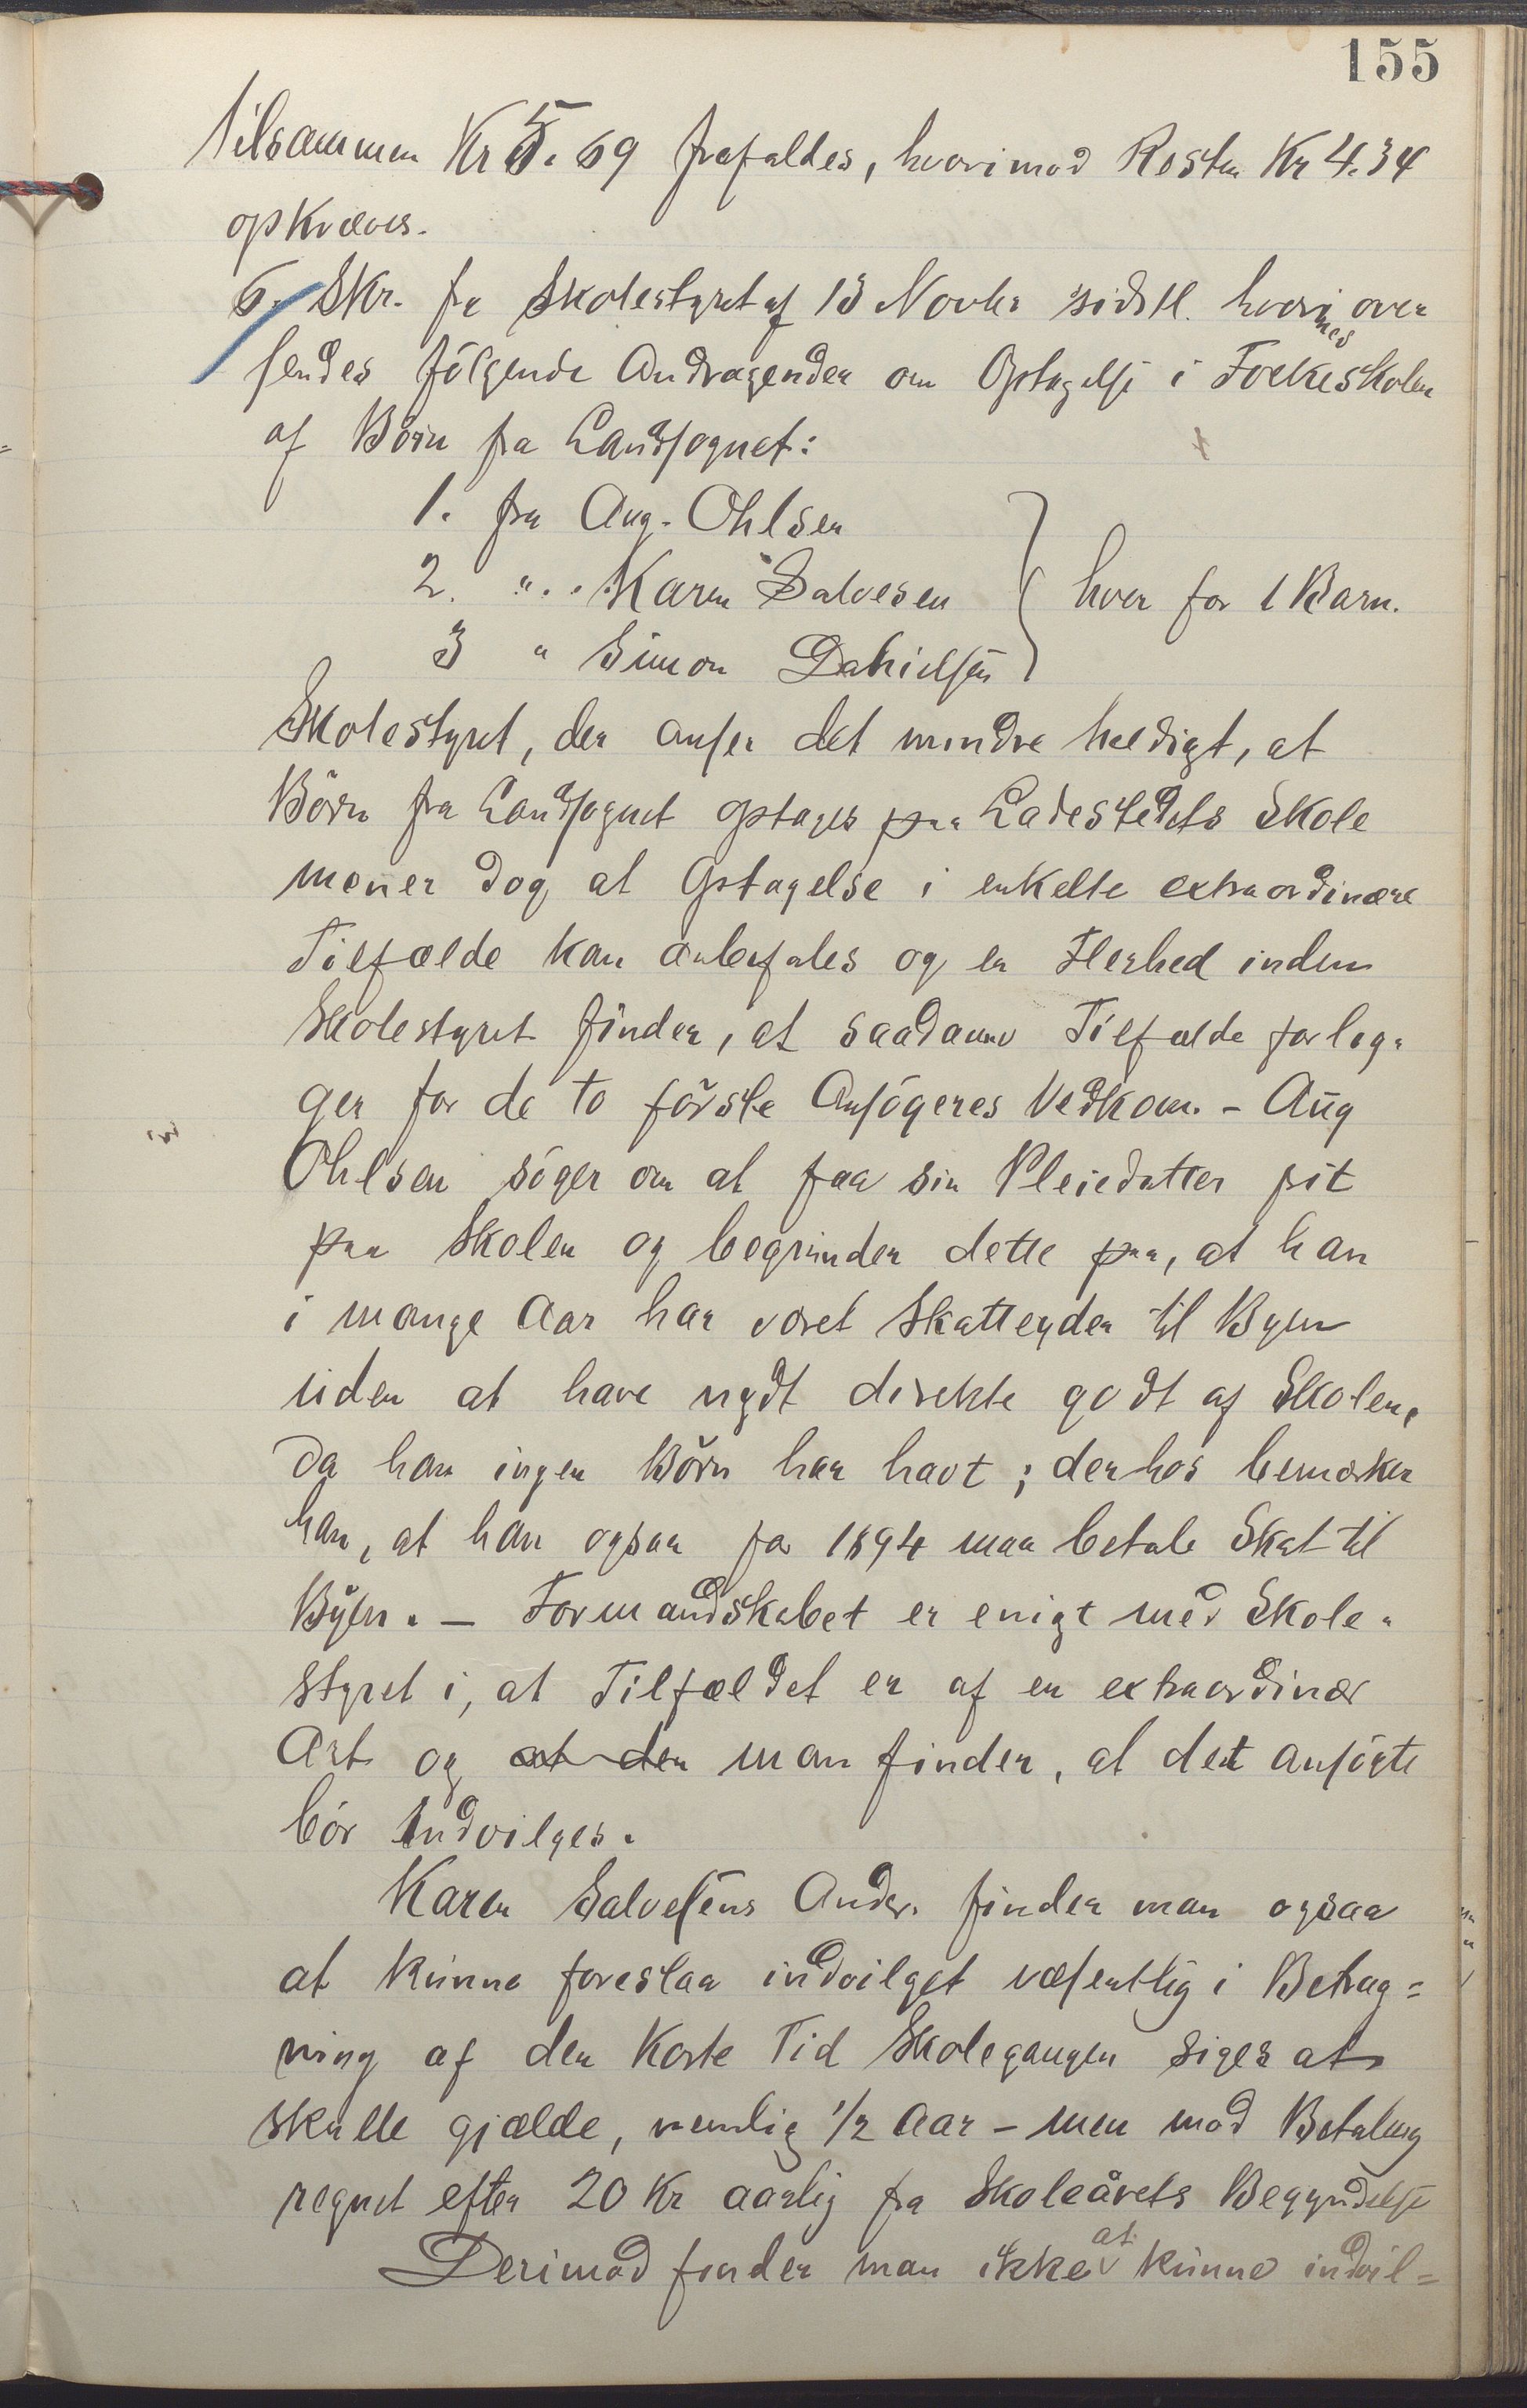 155
tilsammen Kr 5.69 frafaldes, hvorimod Resten Kr 4.34
opkræves.
6. Skr. fra Skolestyret af 13 Novbr sidstl. hvormed over
sendes følgende Andragender om Optagelse i Folkeskolen
af Börn fra Landsognet:
1. fra Aug. Ohlsen
2. " Karen Salvesen } hver for 1 Barn.
3 " Simon Danielsen
Skolestyret, der anser det mindre heldigt, at
Börn fra Landsognet optages paa Ladestedets Skole
mener dog at Optagelse i enkelte extraordinære
Tilfælde kan anbefales og en Flerhed inden
Skolestyret finder, at saadanne Tilfælde forlig-
ger for de to förste Ansögeres Vedkom. - Aug
Ohlsen söger om at faa sin Pleiedatter sit
paa Skolen og begrunder dette paa, at han
i mange Aar har været Skatteyder til Byen
uden at have nydt direkte godt af Skolen,
da han ingen Börn har havt; derhos bemærker
han, at han ogsaa for 1894 maa betale Skat til
Byen. - Formandskabet er enigt med Skole-
styret i, at Tilfældet er af en extraordinær
Art og at den man finder, at det ansögte
bör Indvilges.
Karen Salvesens Andr. finder man ogsaa
at kunne foreslaa indvilget væsentlig i Betrag=
ning af den korte Tid Skolegangen siges at
skulle gjælde, nemlig 1/2 Aar - men mod Betaling
regnet efter 20 Kr aarlig fra Skoleårets Begyndelse
Derimod finder man ikke at kunne indvil=